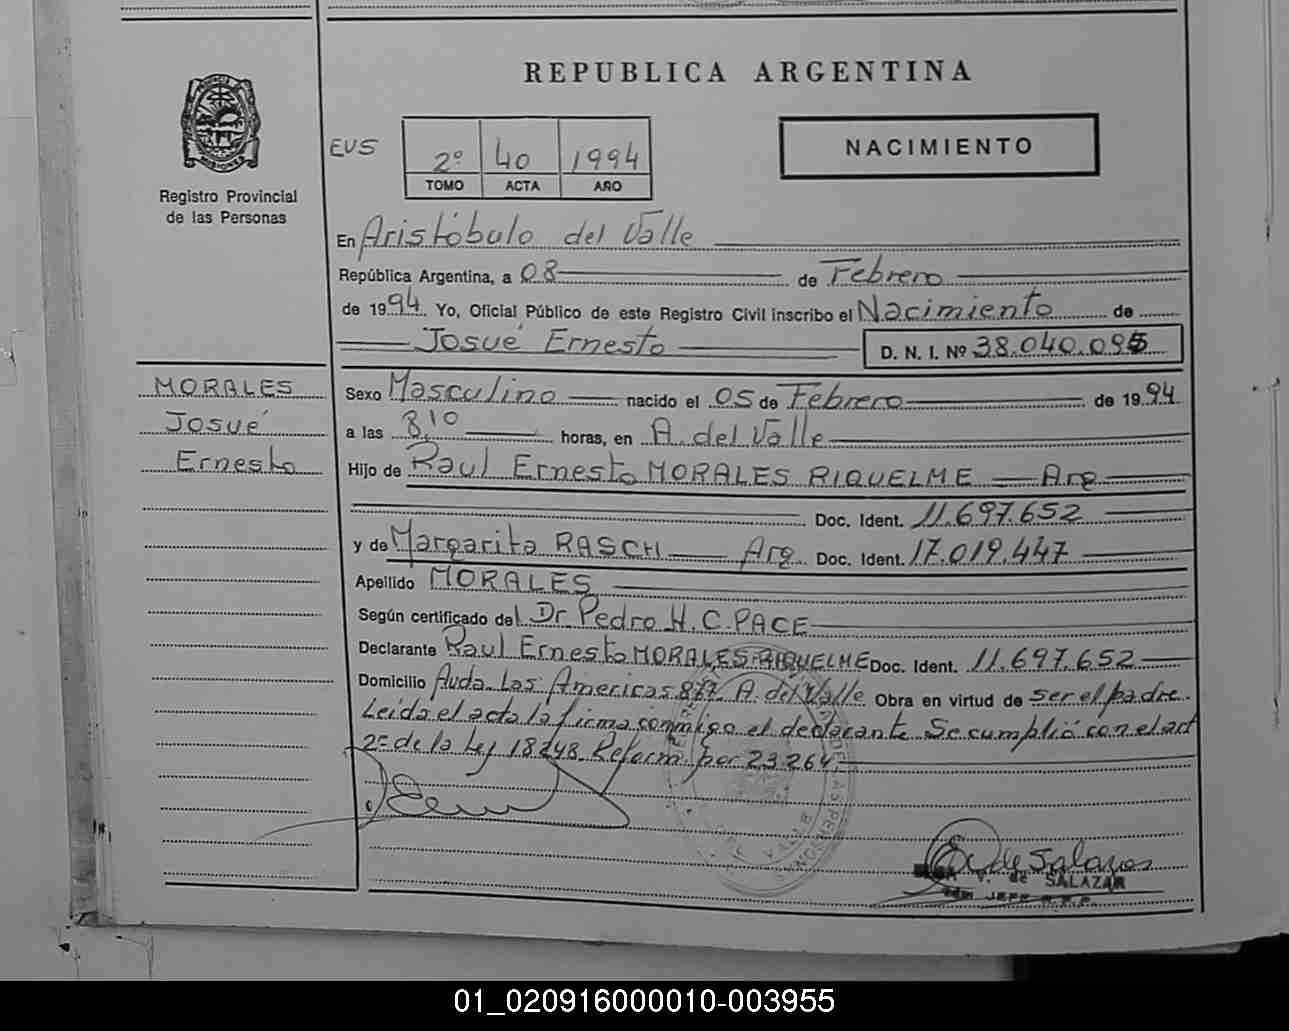 REPUBLICA ARGENTINA
Registro Provincial
de las Personas
EVS
2º 40 1994
TOMO ACTA AÑO
NACIMIENTO
En Aristóbulo del Valle
República Argentina, a 08 de Febrero
de 1994 Yo, Oficial Público de este Registro Civil inscribo el Nacimiento de
Josué Ernesto D. N. I. Nº 38.040.095
MORALES
Josué
Ernesto
Sexo Masculino nacido el 05 de Febrero de 1994
a las 8,10 horas, en A. del Valle
Hijo de Raul Ernesto MORALES RIQUELME Arg
Doc. Ident. 11.697.652
y de Margarita RASCH Arg. Doc. Ident. 17.019.447
Apellido MORALES
Según certificado del Dr. Pedro H. C. PACE
Declarante Raul Ernesto MORALES RIQUELME Doc. Ident. 11.697.652
Domicilio Avda. Las Americas 877 A. del Valle Obra en virtud de ser el padre.
Leida el acta la firma conmigo el declarante Se cumplió con el art
2º de la Ley 18248 Reform por 23264
DE LAS PERSONAS
de Salazar
V. de SALAZAR
JEFE R.P.P.
01_020916000010-003955